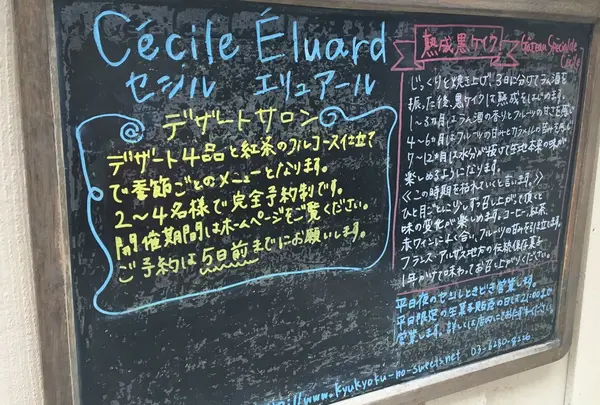 Cécile Éluard
セシル エリュアール
デザートサロン
デザート4品と紅茶のフルコース仕立て
で、季節ごとのメニューとなります。
2〜4名様で完全予約制です。
開催期間はホームページをご覧ください。
ご予約は5日前までにお願いします。
熟成黒ケイク!
Gâteau Spécial de
Cécile
じっくりと焼き上げ、3日に分けてラム酒を
振った後、黒ケイクは熟成をはじめます。
1〜3ヵ月はラム酒の香りとフルーツの甘さを感じ
4〜6月はフルーツの甘みとカラメルの苦みを
7〜12ヵ月は水分が抜けて生地本来の味が
楽しめるようになります。
《この時期を枯れていくと言います。》
ひと月ごとに少しずつ召し上がって頂くと
味の変化が楽しめます。コーヒー、紅茶
赤ワインによく合い、フルーツの甘みを引立てます。
フランス・アルザス地方の伝統保存菓子
1年かけて味わってお召し上がりください。
平日夜のセシルときどき営業します。
平日限定の生菓子販売の日は21:00まで
営業します。詳しくは店内にてお尋ねください。
://www.kyukyoku-no-sweets.net 03-6280-8326